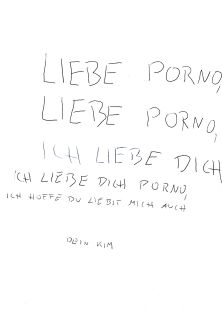 LIEBE PORNO,
LIEBE PORNO,
ICH LIEBE DICH
ICH LIEBE DICH PORNO,
ICH HOFFE DU LIEBST MICH AUCH
DEIN KIM